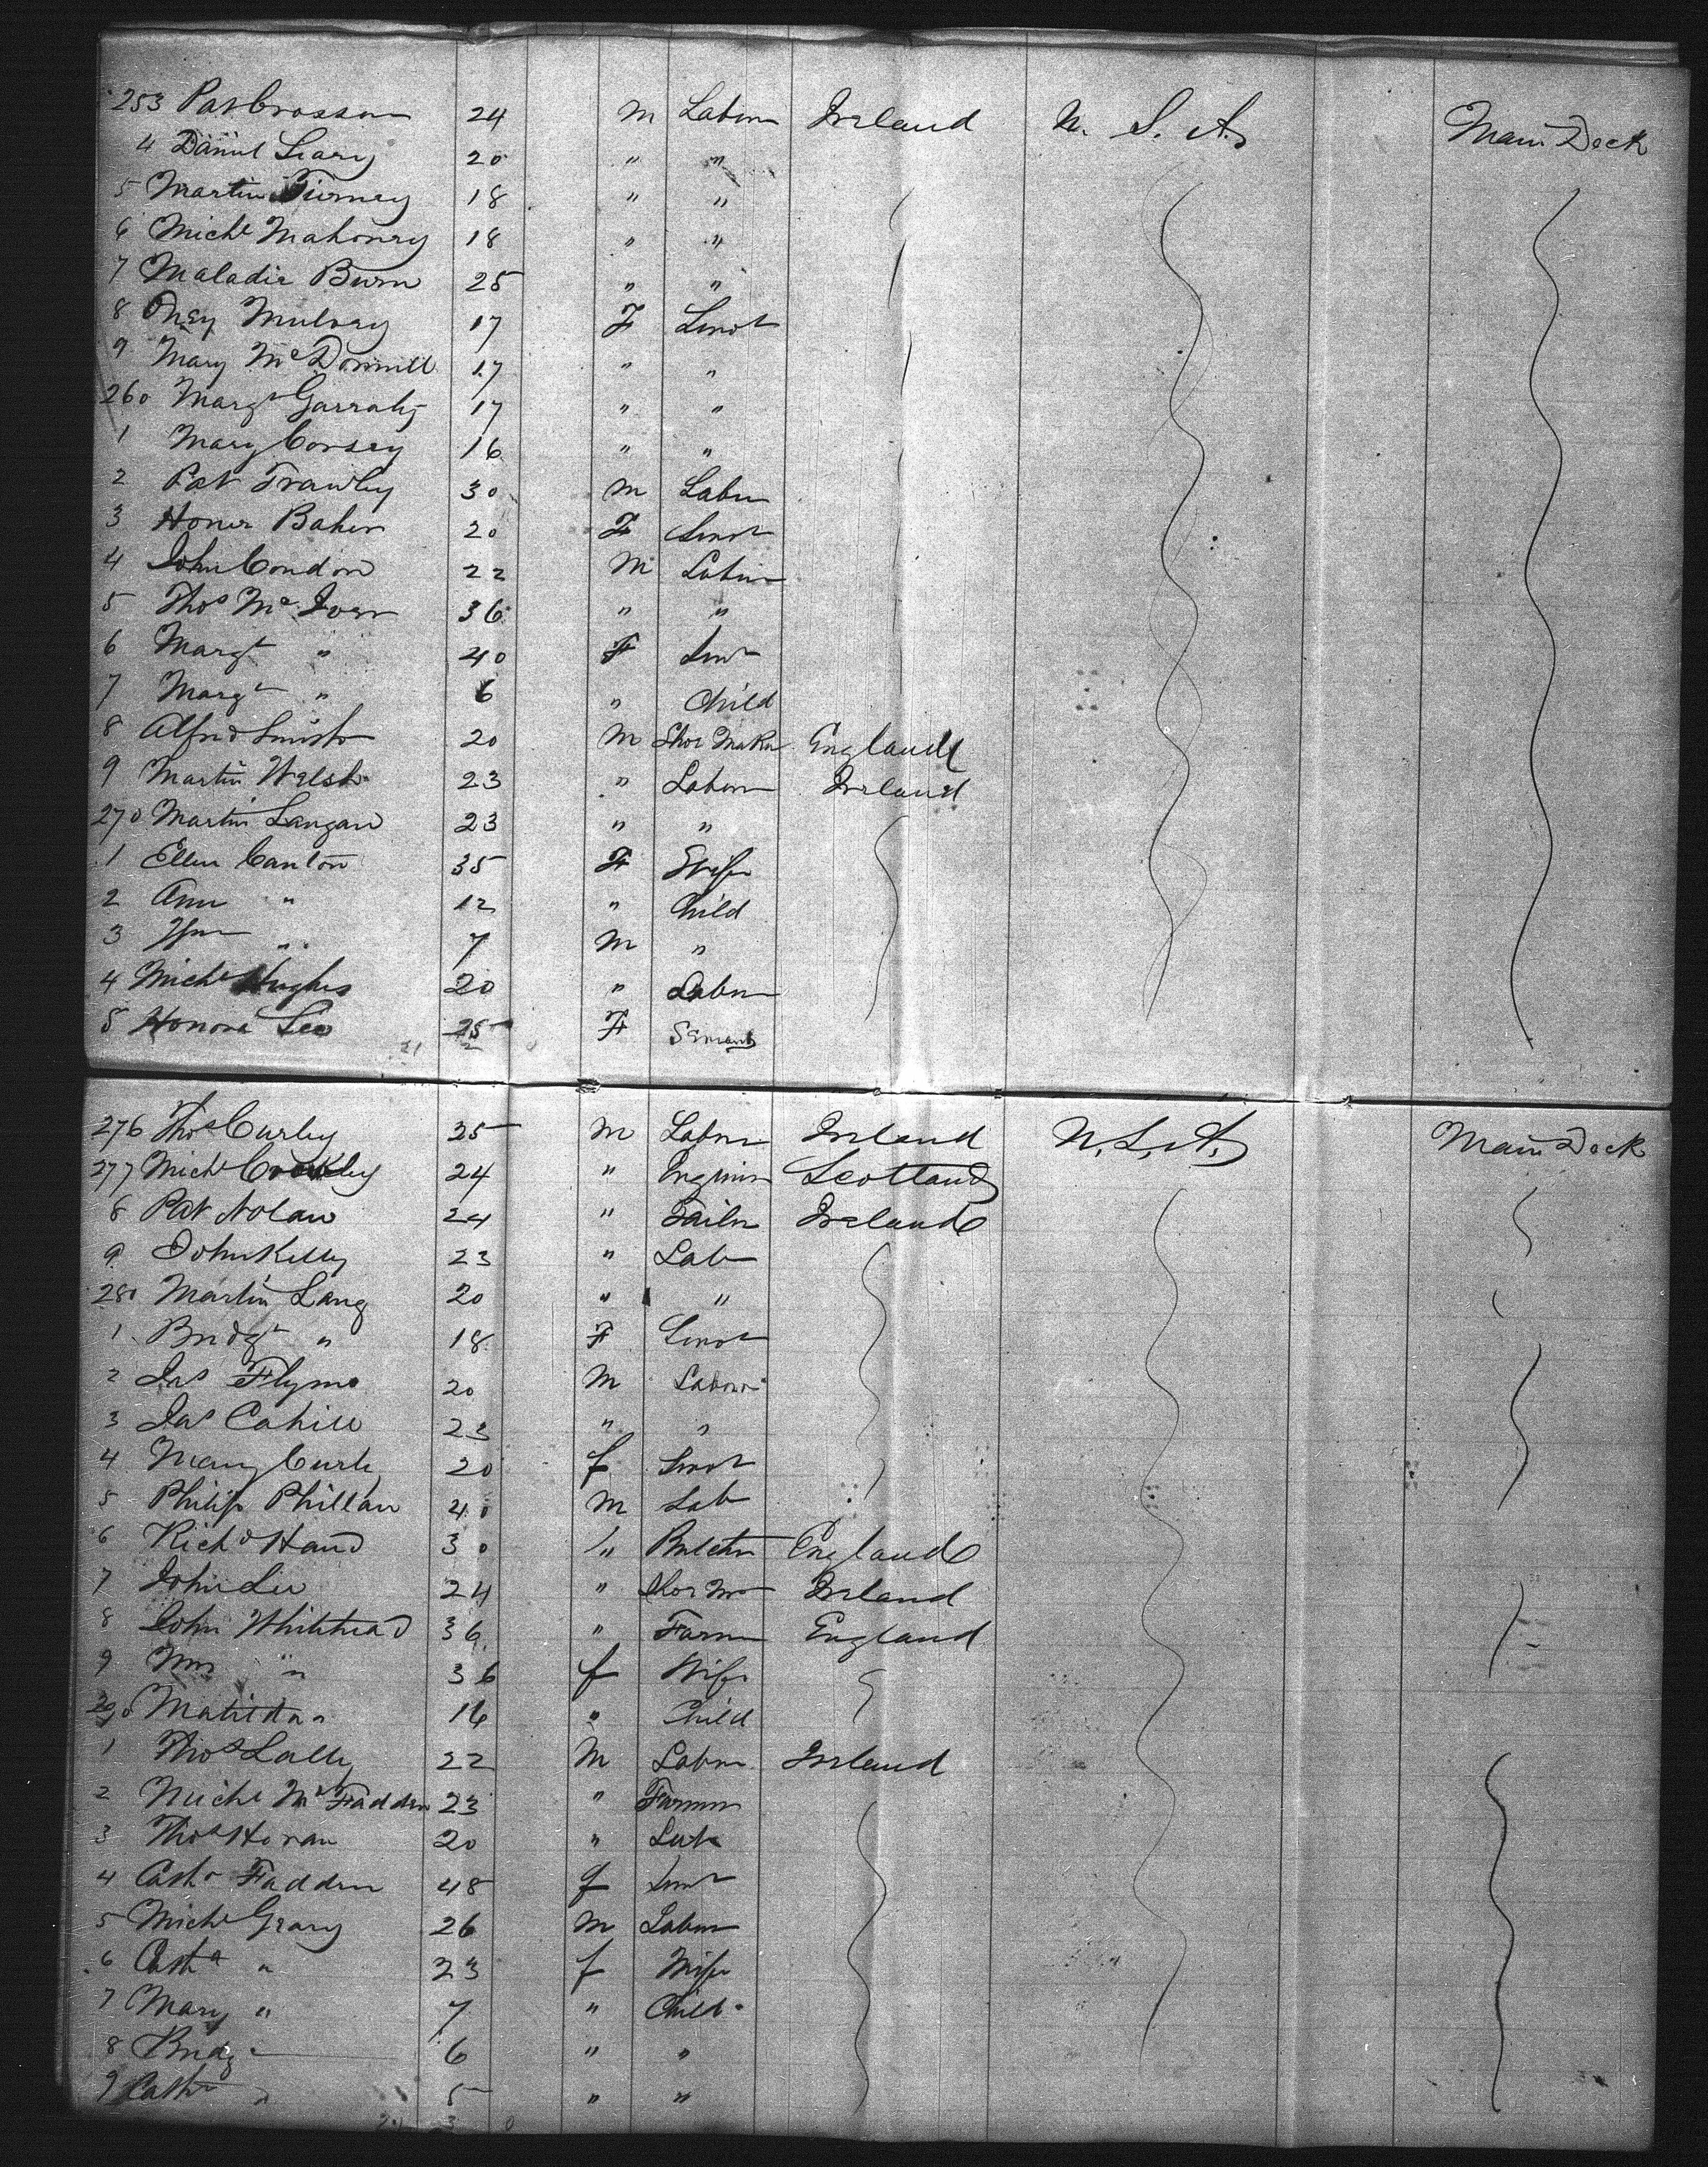 253 Pat Crossan 24 M Labor Ireland U. S. A. Main Deck
4 Daniel Leary 20 " "
5 Martin Tierney 18 " "
6 Michl Mahoney 18 " "
7 Maladie Burn 25 " "
8 Mulvey 17 F Servt
9 Mary McDonnell 17 " "
260 Margt Garrahy 17 " "
1 Mary Corsey 16 " "
2 Pat Frawley 30 M Labr
3 Honer Baker 20 F Servt
4 John Condon 22 M Labor
5 Thos 36 " "
6 Margt " 40 F Servt
7 Margt " 6 " Child
8 Alfred Smith 20 M Shoe Maker England
9 Martin Welsh 23 " Labor Ireland
270 Martin Langan 23 " "
1 Ellen Canton 35 F Wife
2 Ann " 12 " Child
3 Wm " 7 M "
4 Michl Hughes 20 " Labor
5 Honora Leo 25 F Servant
276 Thos Curley 25 M Labor Ireland U. S. A. Main Deck
277 Michl 24 " Engineer Scotland
8 Pat Nolan 24 " Tailor Ireland
9 John Kelly 23 " Lab
280 Martin Lang 20 " "
1 Bridgt " 18 F Servt
2 Jas Flynn 20 M Labour
3 Jas Cahill 23 " "
4 Mary Curly 20 f Servt
5 Philip Phillan 40 M Lab
6 Richd Hand 30 " Butcher England
7 John Lee 24 " Shoe Mr Ireland
8 John Whitehead 36 " Farmr England
9 Mrs " 36 f Wife
290 Matilda " 16 " Child
1 Thos Lally 22 M Labor Ireland
2 Michl McFadden 23 " Farmer
3 Thos Horan 20 " Lab
4 Cathr Fadden 48 f Servt
5 Michl Grary 26 M Labor
6 Cath " 23 f Wife
7 Mary " 7 " Child
8 Bridgt 6 " "
9 Cathr " 5 " "